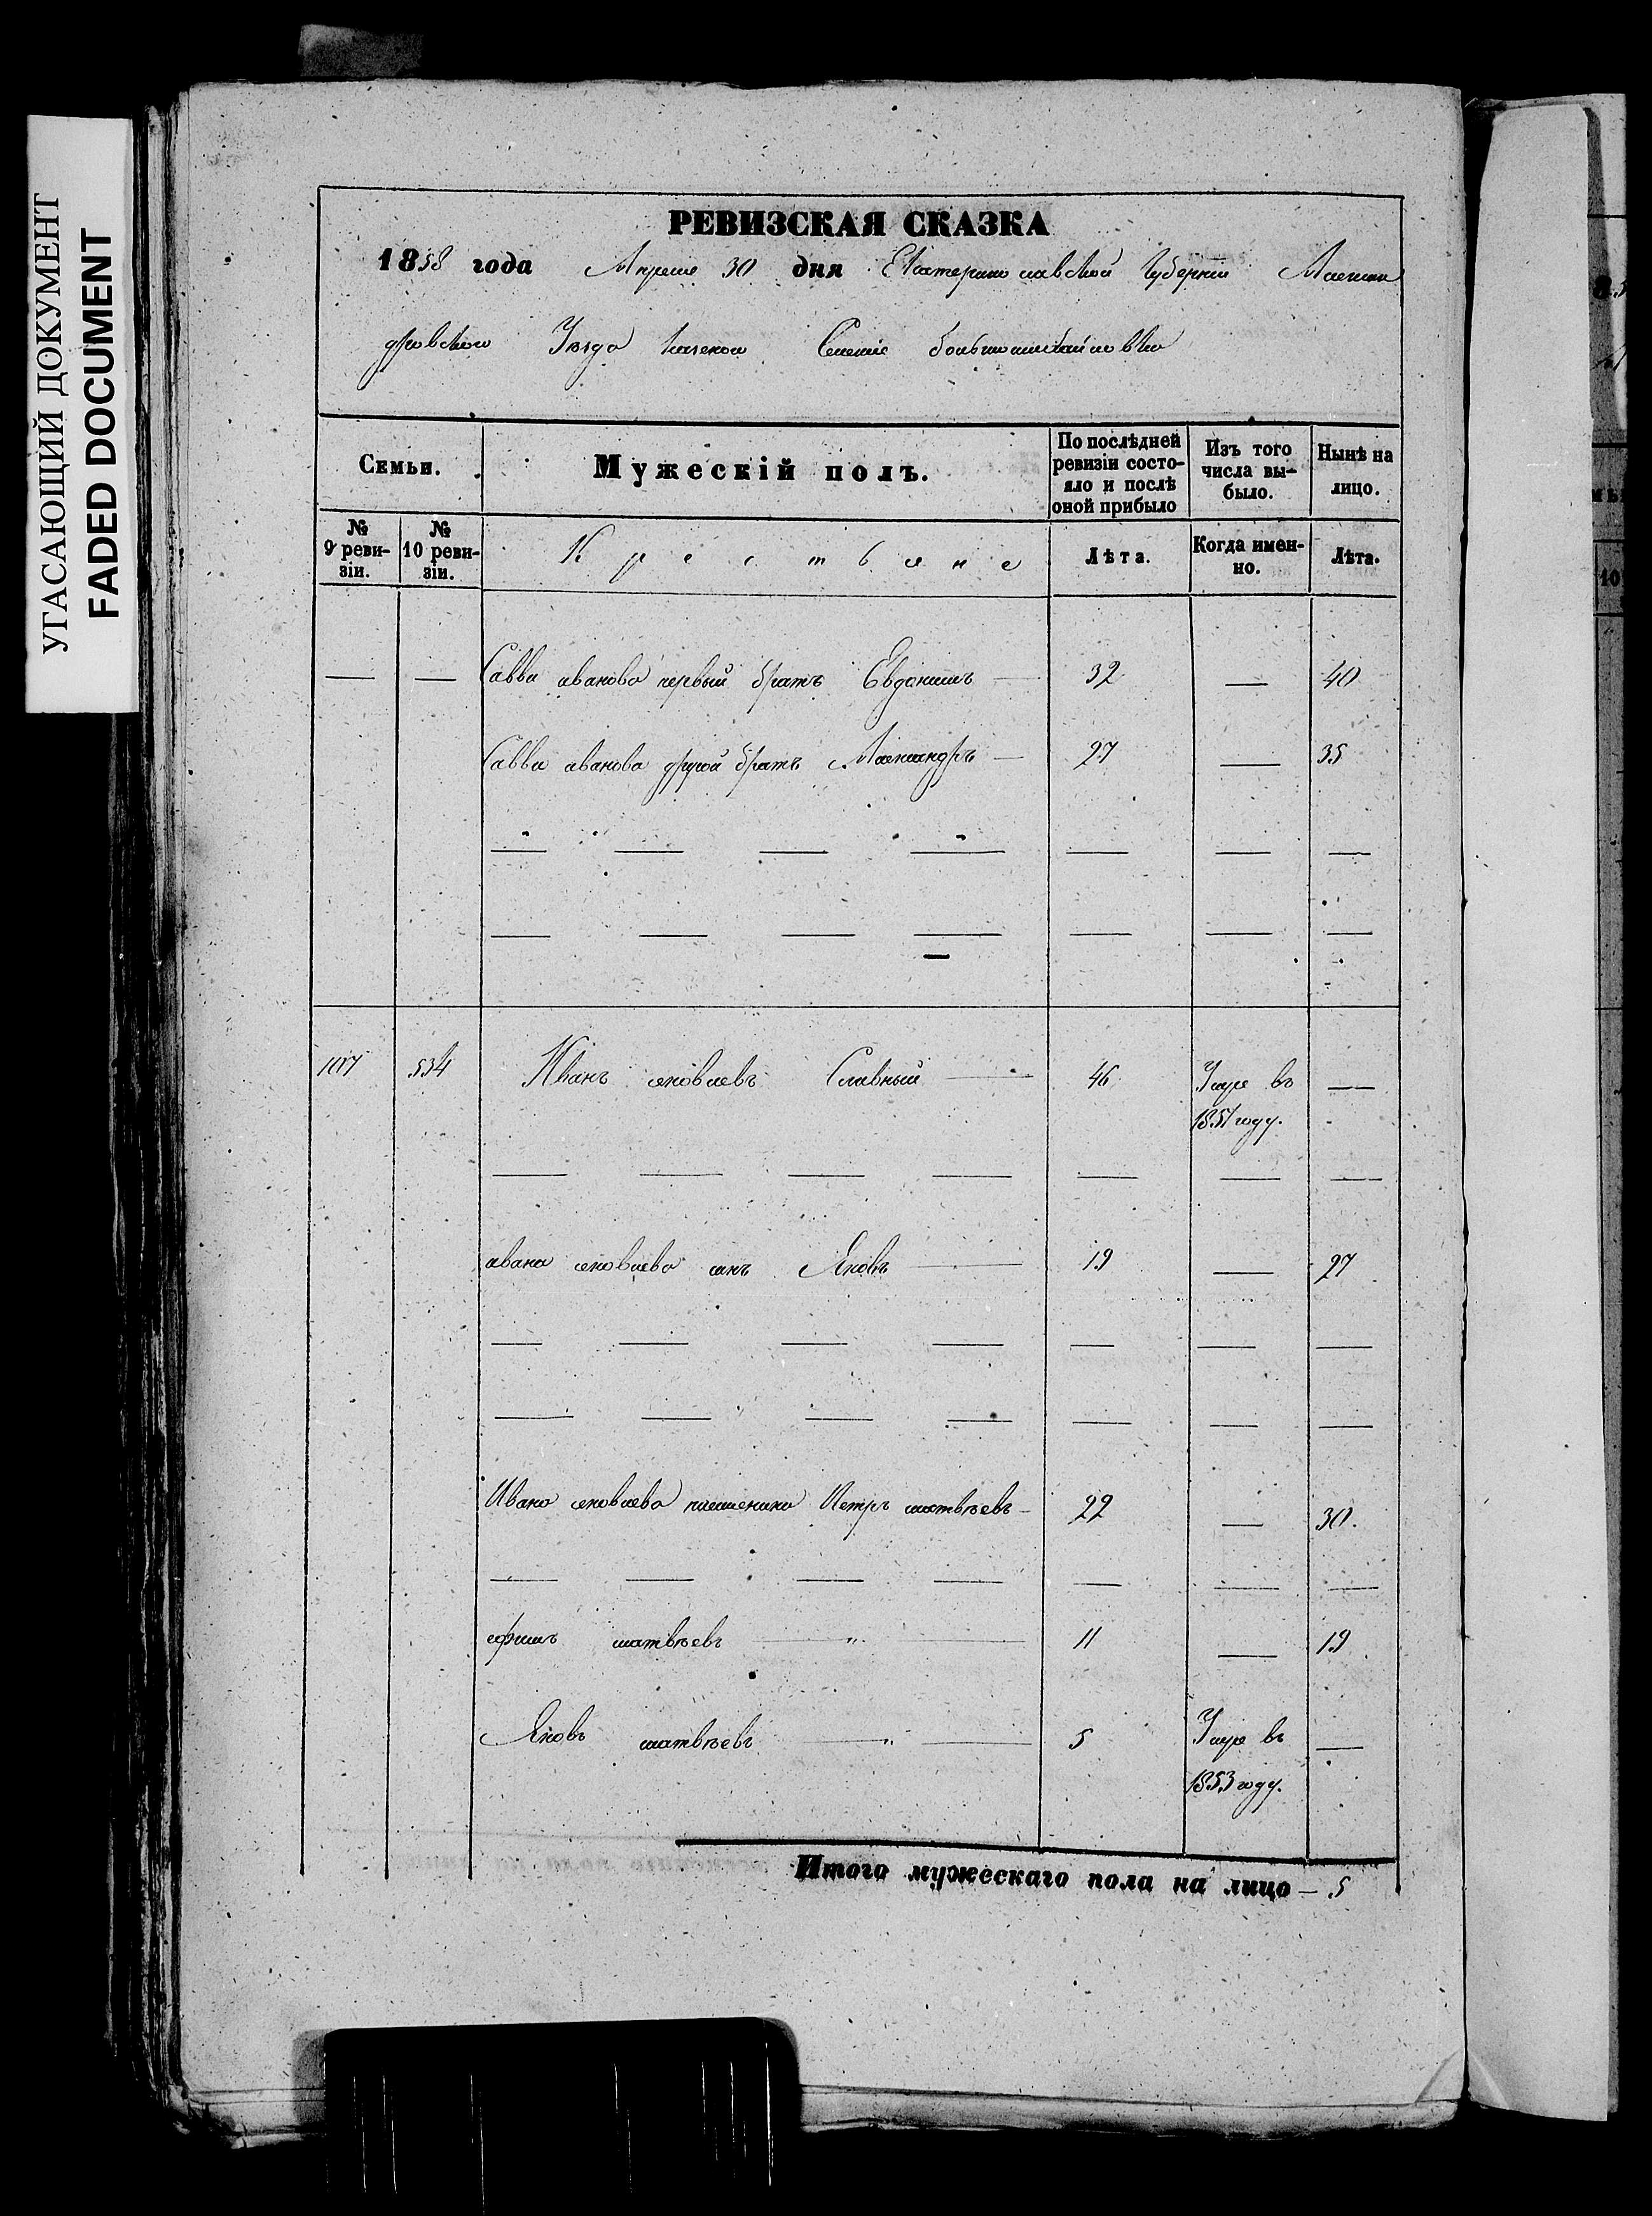 УГАСАЮЩИЙ ДОКУМЕНТ
FADED DOCUMENT
РЕВИЗСКАЯ СКАЗКА
1858 года Апреля 30 дня Екатеринославской Губернии Алексан
дровского Уезда Селение
Семьи.
Мужескій полъ.
По послѣдней ревизіи состо-
яло и послѣ
оной прибыло
Изъ того
числа вы-
было.
Нынѣ на
лицо.
№ 9 реви-
зіи.
№ 10 реви-
зіи.
Крестьяне
Лѣта.
Когда имен-
но.
Лѣта.
— — Саввы иванова первый братъ Евдокимъ — 32 — 40
Саввы иванова другой братъ Александръ — 27 — 35
107 534 Иванъ яковлевъ Славный — 46 Умре въ —
1851 году.
ивана яковлева сынъ Яковъ — 19 — 27
Ивана яковлева племеники Петръ матвѣевъ — 22 — 30.
ефимъ матвѣевъ — " — 11 — 19
Яковъ матвѣевъ — " — 5 Умре въ —
1853 году.
Итого мужескаго пола на лицо — 5